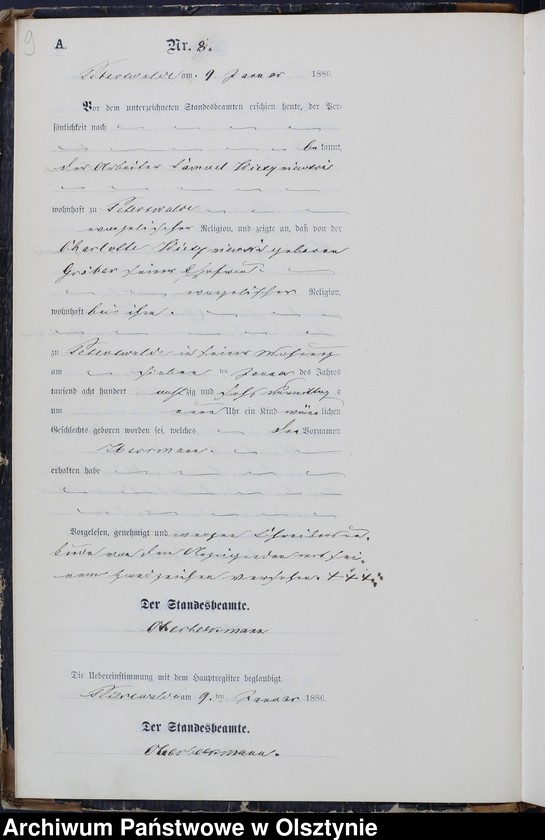 9
A.
Nr. 8.
Peterswalde am 9 Januar 1886.
Vor dem unterzeichneten Standesbeamten erschien heute, der Per-
sönlichkeit nach
be kannt,
der Arbeiter Samuel
wohnhaft zu Peterswalde
evangelischer Religion, und zeigte an, daß von der
Charlotte geborenen
Gröber seiner Ehefrau
evangelischer Religion,
wohnhaft bei ihm
zu Peterswalde in seiner Wohnung
am sieben ten Januar des Jahres
tausend acht hundert achtzig und sechs Vormittags
um neun Uhr ein Kind männ lichen
Geschlechts geboren worden sei, welches den Vornamen
Herrmann
erhalten habe
Vorgelesen, genehmigt und wegen Schreibensun-
kunde von dem Anzeigenden mit sei-
nem Handzeichen versehen. +++
Der Standesbeamte.
Die Uebereinstimmung mit dem Hauptregister beglaubigt.
Peterswalde am 9. ten Januar 1886.
Der Standesbeamte.
Archiwum Państwowe w Olsztynie